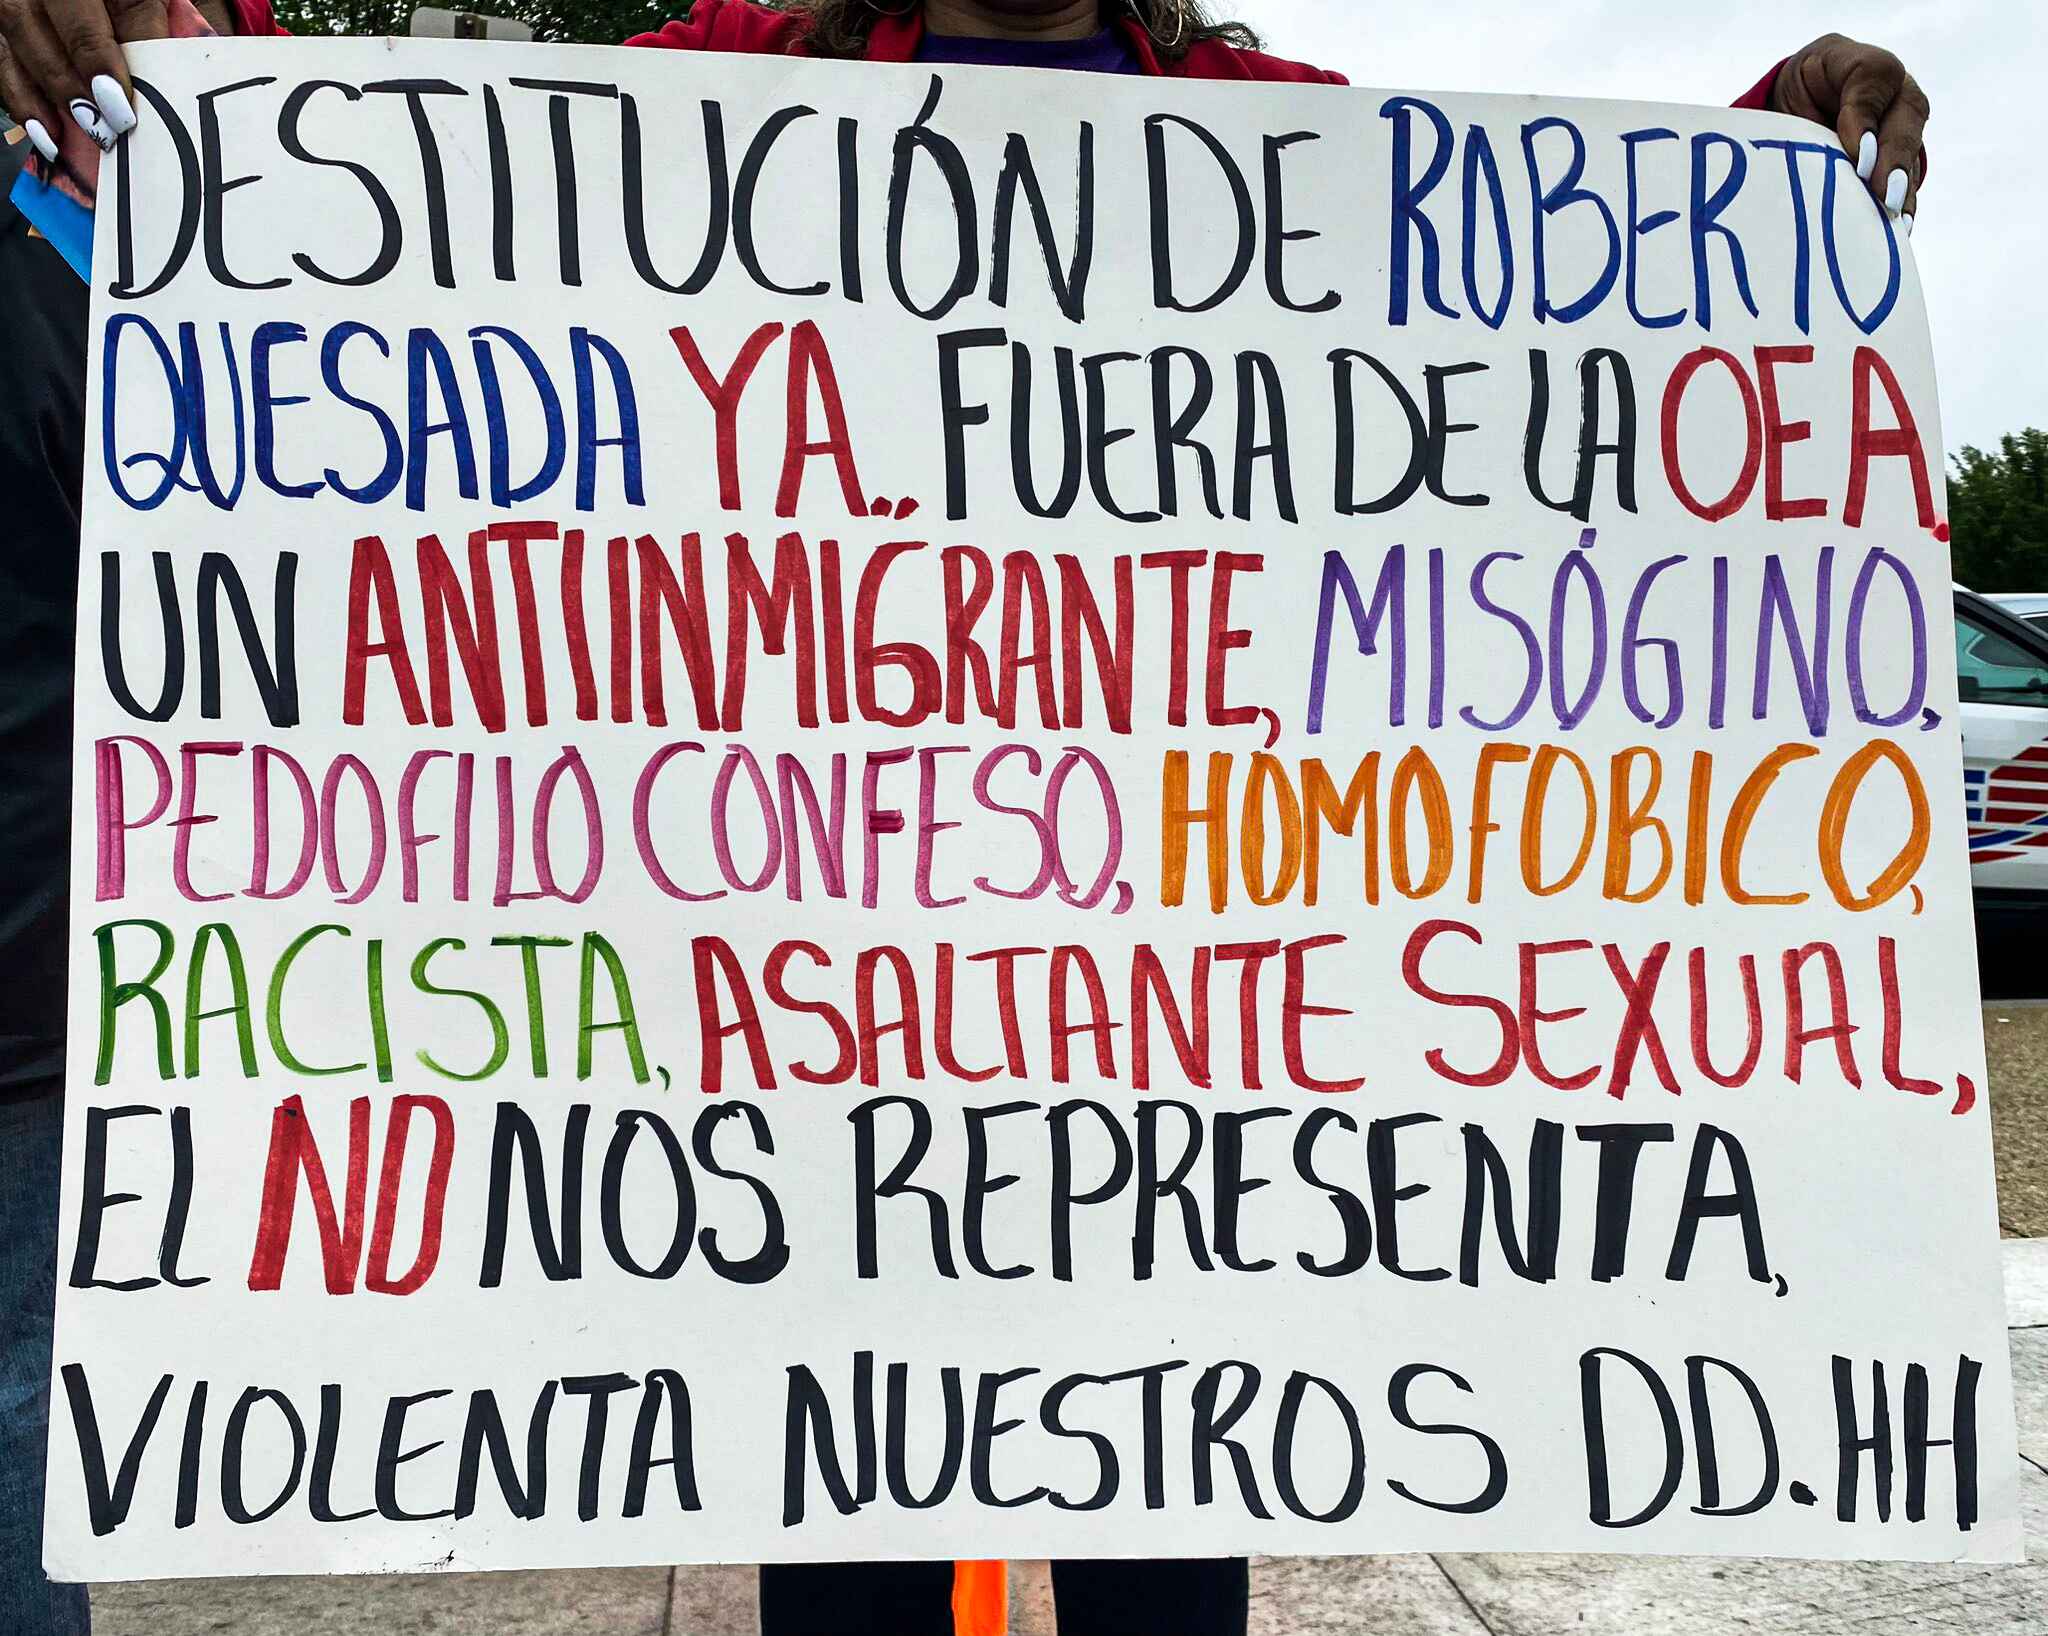 DESTITUCIÓN DE ROBERTO
QUESADA YA.. FUERA DE LA OEA.
UN ANTIINMIGRANTE, MISÓGINO,
PEDOFILO CONFESO, HOMOFOBICO,
RACISTA, ASALTANTE SEXUAL,
EL NO NOS REPRESENTA,
VIOLENTA NUESTROS DD.HH